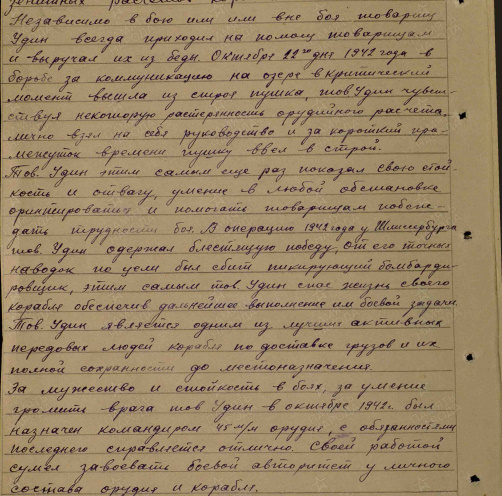 зенитных расчетов кор
Независимо в бою или или вне боя товарищ
Удин всегда приходил на помощь товарищам
и выручал их из беды. Октября 22го дня 1942 года в
борьбе за коммуникацию на озере в критический
момент вышла из строя пушка, тов Удин чувст-
ствуя некоторую растерянность орудийного расчета.
лично взял на себя руководство и за короткий про-
межуток времени пушку ввел в строй.
Тов. Удин этим самым еще раз показал свою стой-
кость и отвагу, умение в любой обстановке
ориентироваться и помогать товарищам побеж-
дать трудности боя. В операцию 1942 года у Шлиссербурга
тов. Удин одержал блестящую победу. От его точных
наводок по цели был сбит пикирующий бомбарди-
ровщик, этим самым тов Удин спас жизнь своего
корабля обеспечив дальнейшее выполнение им боевой задачи.
Тов. Удин является одним из лучших активных
передовых людей корабля по доставке грузов и их
полной сохранности до местоназначения.
За мужество и стойкость в боях, за умение
громить врага тов Удин в октябре 1942 г. был
назначен командиром 45 м/м орудия, с обязанностями
последнего справляется отлично. Своей работой
сумел завоевать боевой авторитет у личного
состава орудия и корабля.